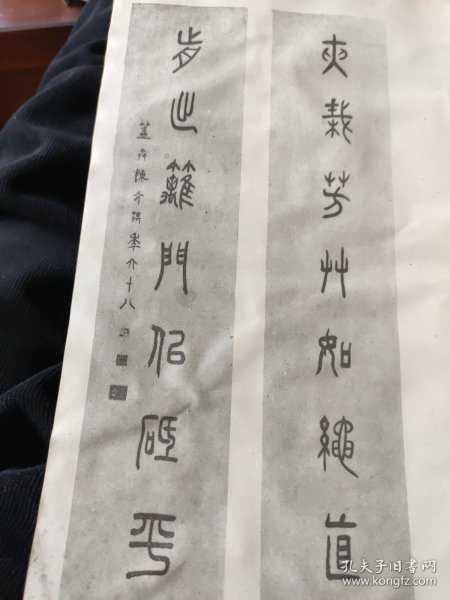 夾栽芳艸如繩直
步出籬門佀砥平
簠齋陳介祺年六十八
孔夫子旧书网
www.kongfz.com